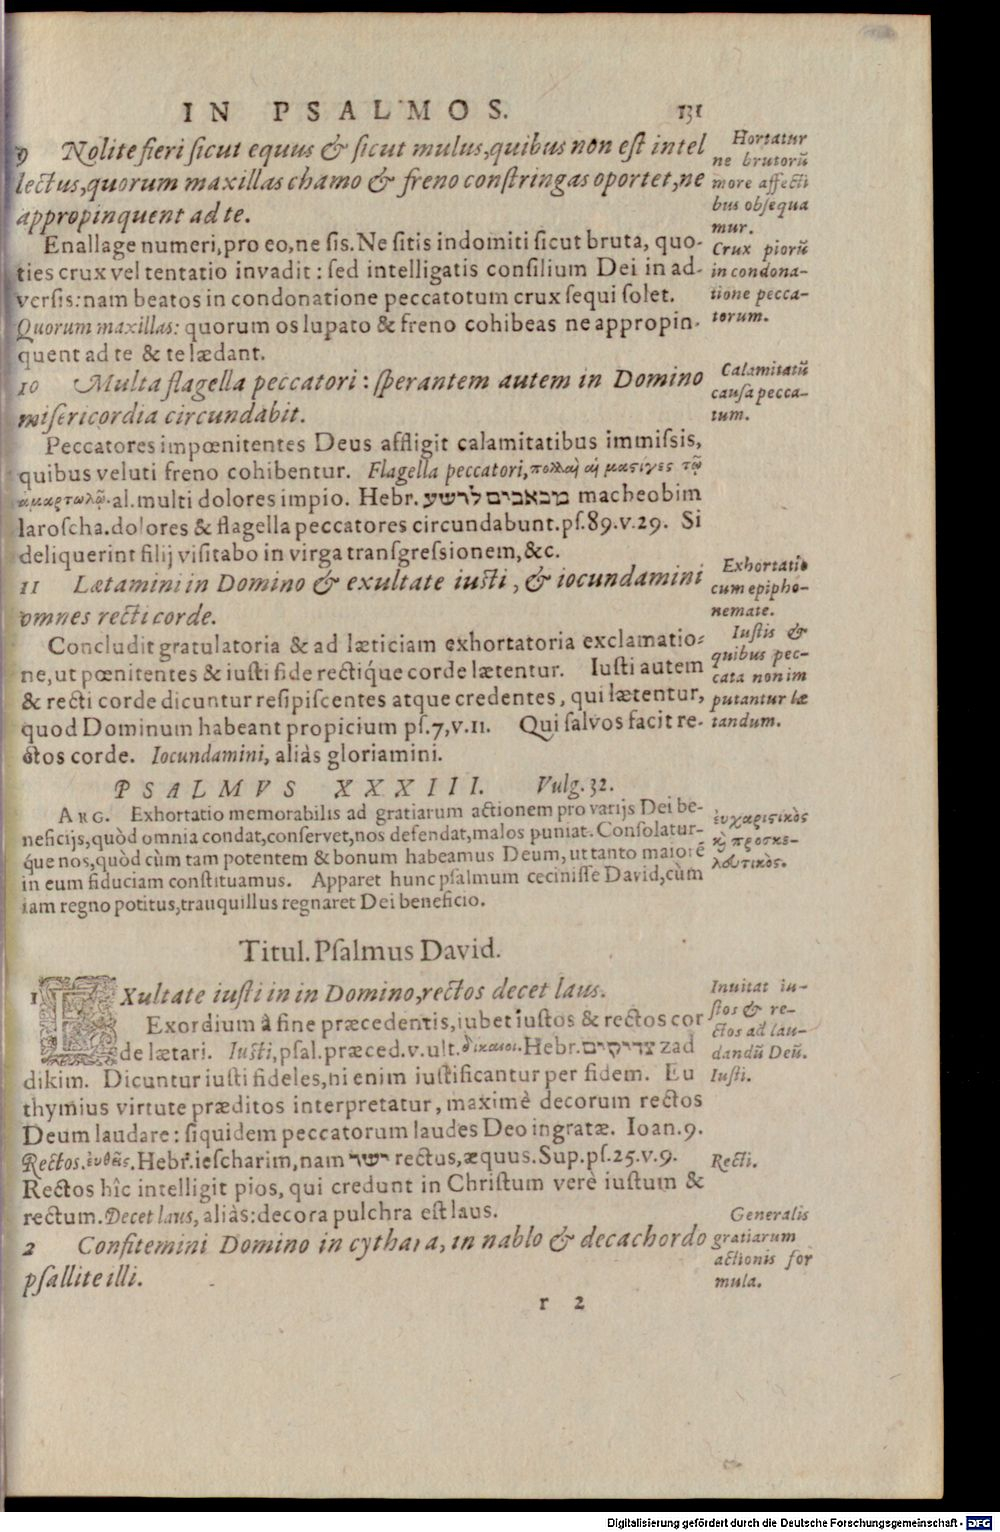 IN PSALMOS. 131
9 Nolite fieri sicut equus & sicut mulus, quibus non est intel
lectus, quorum maxillas chamo & freno constringas oportet, ne
appropinquent ad te.
Hortatur
ne brutorũ
more affecti
bus obsequa
mur.
Enallage numeri, pro eo, ne sis. Ne sitis indomiti sicut bruta, quo-
ties crux vel tentatio invadit: sed intelligatis consilium Dei in ad-
versis: nam beatos in condonatione peccatotum crux sequi solet.
Quorum maxillas: quorum os lupato & freno cohibeas ne appropin-
quent ad te & te lædant.
Crux piorũ
in condona-
tione pecca-
torum.
10 Multa flagella peccatori: sperantem autem in Domino
misericordia circundabit.
Calamitatũ
causa pecca-
tum.
Peccatores impœnitentes Deus affligit calamitatibus immissis,
quibus veluti freno cohibentur. Flagella peccatori, πολλαὶ αἱ μαστιγες τῷ
ἁμαρτωλῷ. al. multi dolores impio. Hebr. מכאבים לרשע macheobim
laroscha. dolores & flagella peccatores circundabunt. ps. 89. v. 29. Si
deliquerint filij visitabo in virga transgressionem, &c.
11 Lætamini in Domino & exultate iusti, & iocundamini
omnes recti corde.
Exhortatio
cum epipho-
nemate.
Concludit gratulatoria & ad læticiam exhortatoria exclamatio-
ne, ut pœnitentes & iusti fide rectiq́ue corde lætentur. Iusti autem
& recti corde dicuntur resipiscentes atque credentes, qui lætentur,
quod Dominum habeant propicium ps. 7, v. 11. Qui salvos facit re-
ctos corde. Iocundamini, aliàs gloriamini.
Iustis &
quibus pec-
cata non im
putantur læ
tandum.
PSALMVS XXXIII. Vulg. 32.
ARG. Exhortatio memorabilis ad gratiarum actionem pro varijs Dei be-
neficijs, quòd omnia condat, conservet, nos defendat, malos puniat. Consolatur-
q́ue nos, quòd cùm tam potentem & bonum habeamus Deum, ut tanto maiorẽ
in eum fiduciam constituamus. Apparet hunc psalmum cecinisse David, cùm
iam regno potitus, trauquillus regnaret Dei beneficio.
εὐχαριστικὸς
καὶ προσκε-
λευτικὸς.
Titul. Psalmus David.
1 EXultate iusti in in Domino, rectos decet laus.
Invitat iu-
stos & re-
ctos ad lau-
dandũ Deũ.
Exordium à fine præcedentis, iubet iustos & rectos cor
de lætari. Iusti, psal. præced. v. ult. δίκαιοι. Hebr. צדיקים zad
dikim. Dicuntur iusti fideles, ni enim iustificantur per fidem. Eu
thymius virtute præditos interpretatur, maximè decorum rectos
Deum laudare: siquidem peccatorum laudes Deo ingratæ. Ioan. 9.
Rectos. εὐθεῖς. Hebr. iescharim, nam ישר rectus, æquus. Sup. ps. 25. v. 9.
Rectos hîc intelligit pios, qui credunt in Christum verè iustum &
rectum. Decet laus, aliàs: decora pulchra est laus.
Iusti.
Recti.
2 Confitemini Domino in cythara, in nablo & decachordo
psallite illi.
Generalis
gratiarum
actionis for
mula.
r 2
Digitalisierung gefördert durch die Deutsche Forschungsgemeinschaft - DFG